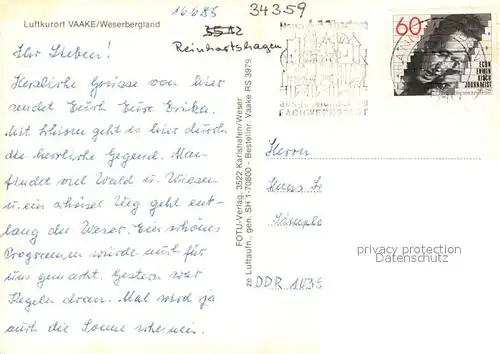 Luftkurort VAAKE/Weserbergland
16.6.85
34359
3512
Reinhartshagen
60
EGON
ERWIN
KISCH
JOURNALIST
FACHWERKSTADT
Ihr Lieben!
Herzliche Grüsse von hier
sendet Euch Eure Erika.
Mit Schirm geht es hier durch
die herrliche Gegend. Man
findet viel Wald u. Wiesen
u. ein schöner Weg geht ent-
lang der Weser. Ein schönes
Programm wurde auch für
uns gemacht. Gestern war
Kegeln dran. Mal wird ja
auch die Sonne scheinen.
FOTU-Verlag, 3522 Karlshafen/Weser
ze Luftaufn., gen. SH 1-70800 - Bestellnr. Vaake RS 3979
Herrn
Hans
DDR 1035
privacy protection
Datenschutz